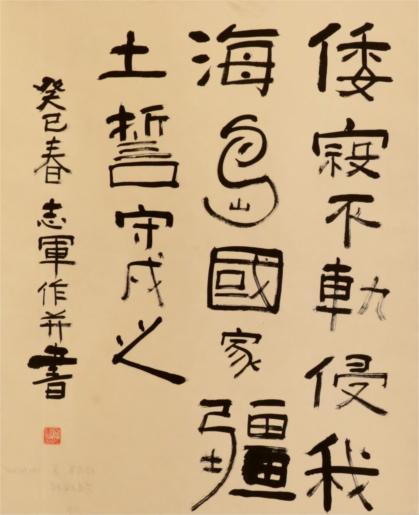 倭寇不軌侵我
海島國家疆
土誓守戍之
癸巳春志軍作并書